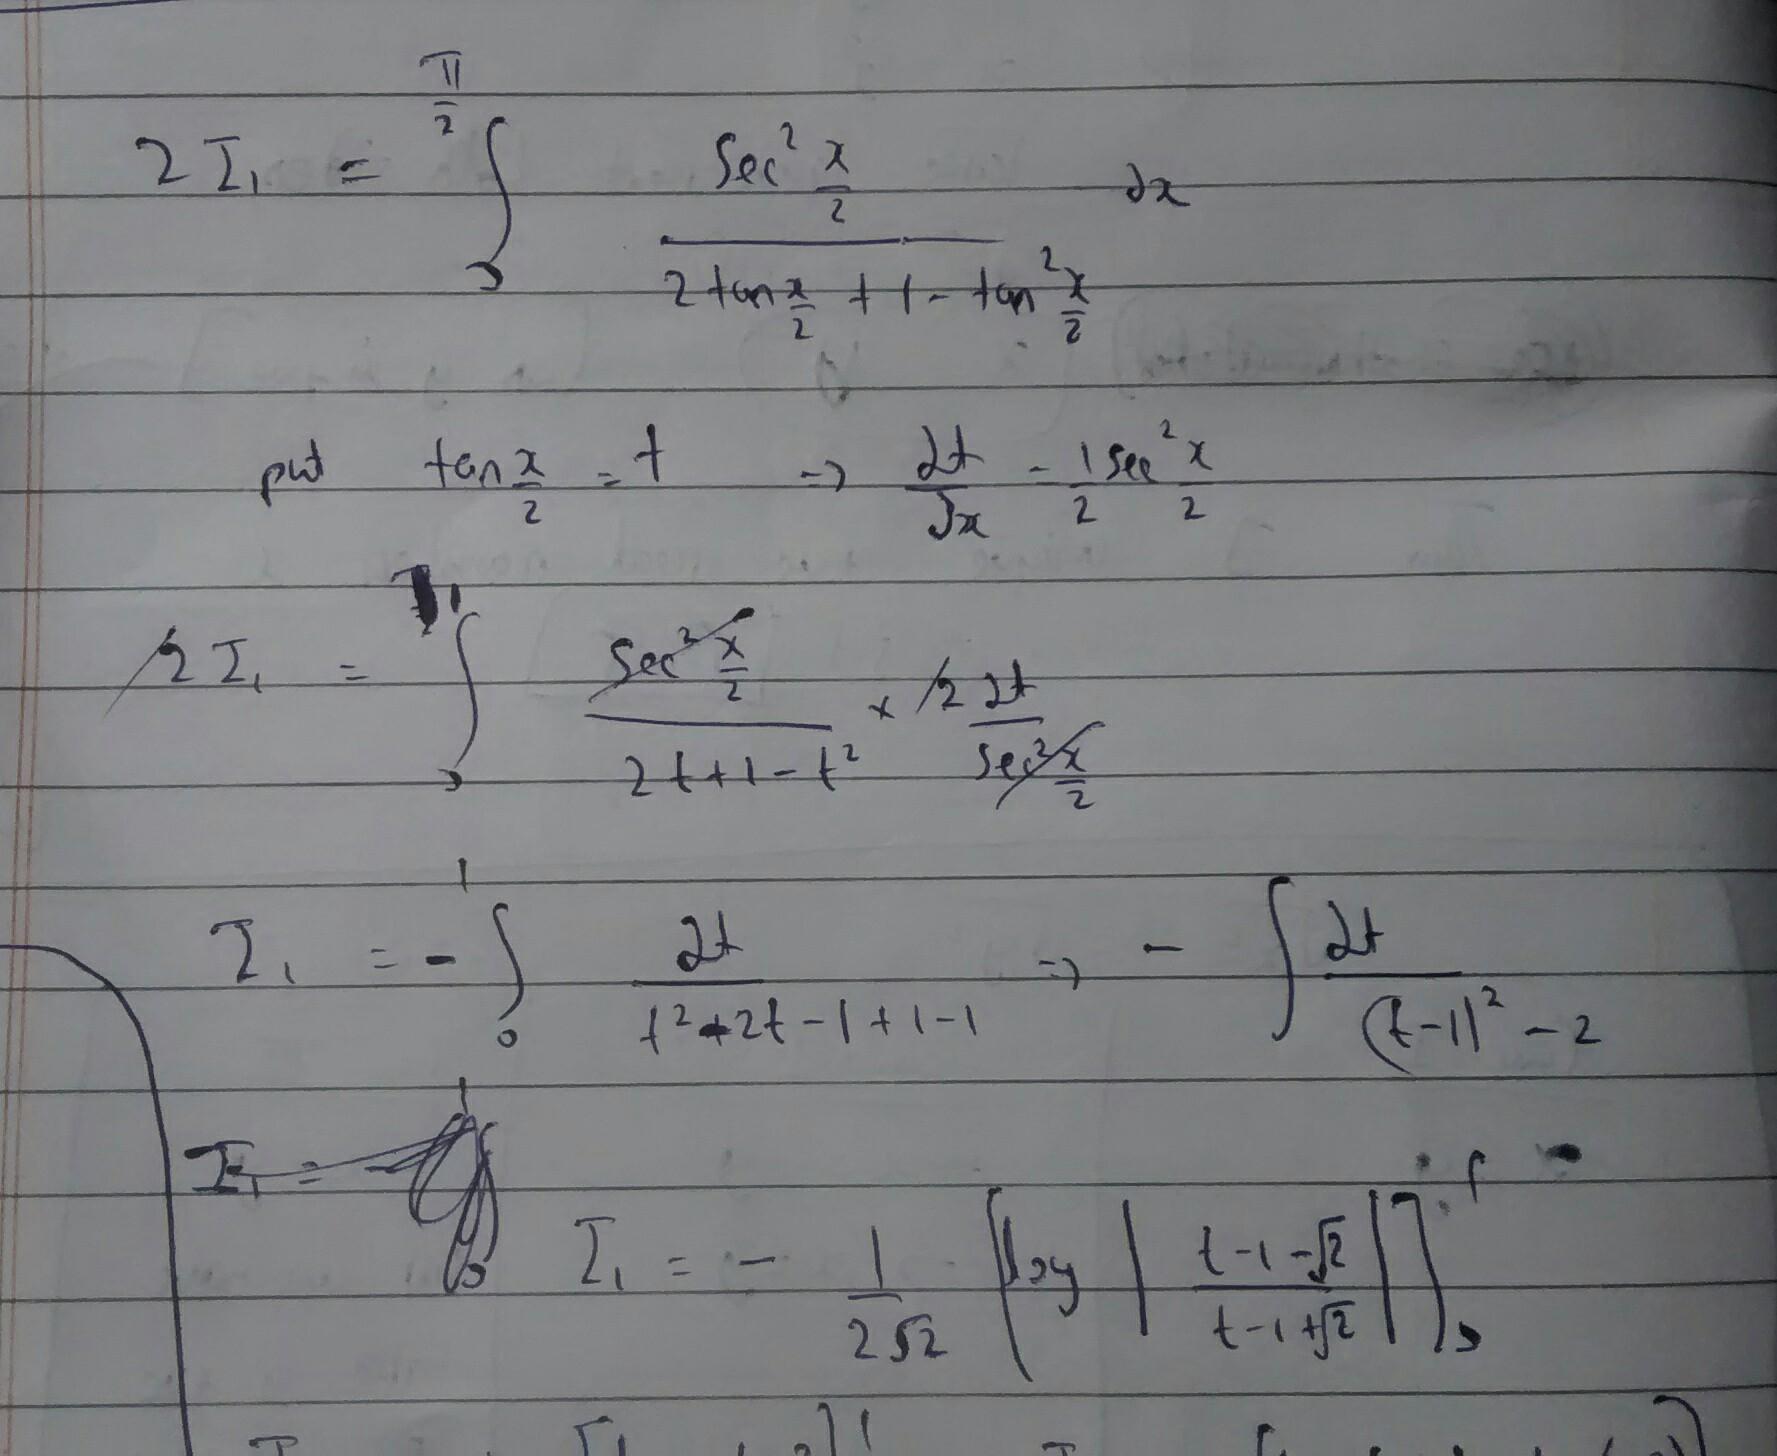 2I₁ = ∫₀^{π/2} sec² x/2 / (2 tan x/2 + 1 - tan² x/2) dx
put tan x/2 = t => dt/dx = 1/2 sec² x/2
2I₁ = ∫₀¹ sec² x/2 / (2t + 1 - t²) × 2 dt / sec² x/2
I₁ = - ∫₀¹ dt / (t² - 2t - 1 + 1 - 1) => - ∫ dt / ((t-1)² - 2)
I₁ =
I₁ = - 1/(2√2) [log | (t-1-√2) / (t-1+√2) |]₀¹